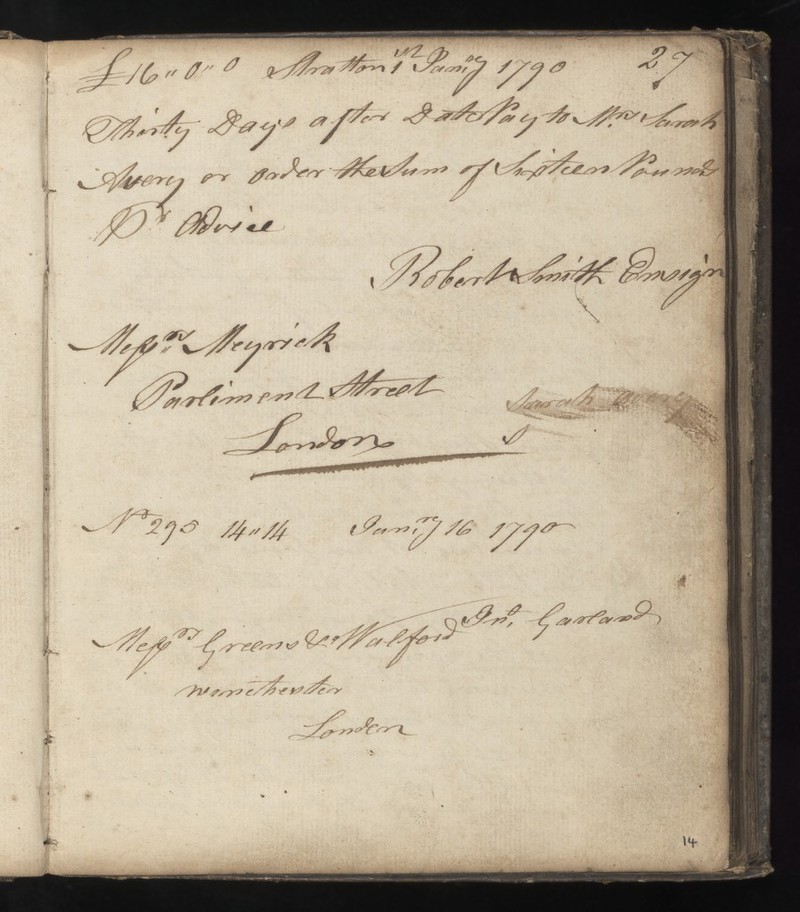 27
£16"0"0 Stratton 1st Janry 1790
Thirty Days after Date Pay to Mrs Sarah
Avery or order the Sum of Sixteen Pounds
Pr Advice
Robert Smith Ensign
Messrs Meyrick
Parliment Street
London
Sarah Avery
S
No 295 14"14 Janry 16 1790
Jno. Garland
Messrs Greens & Walford
winchester
London
14